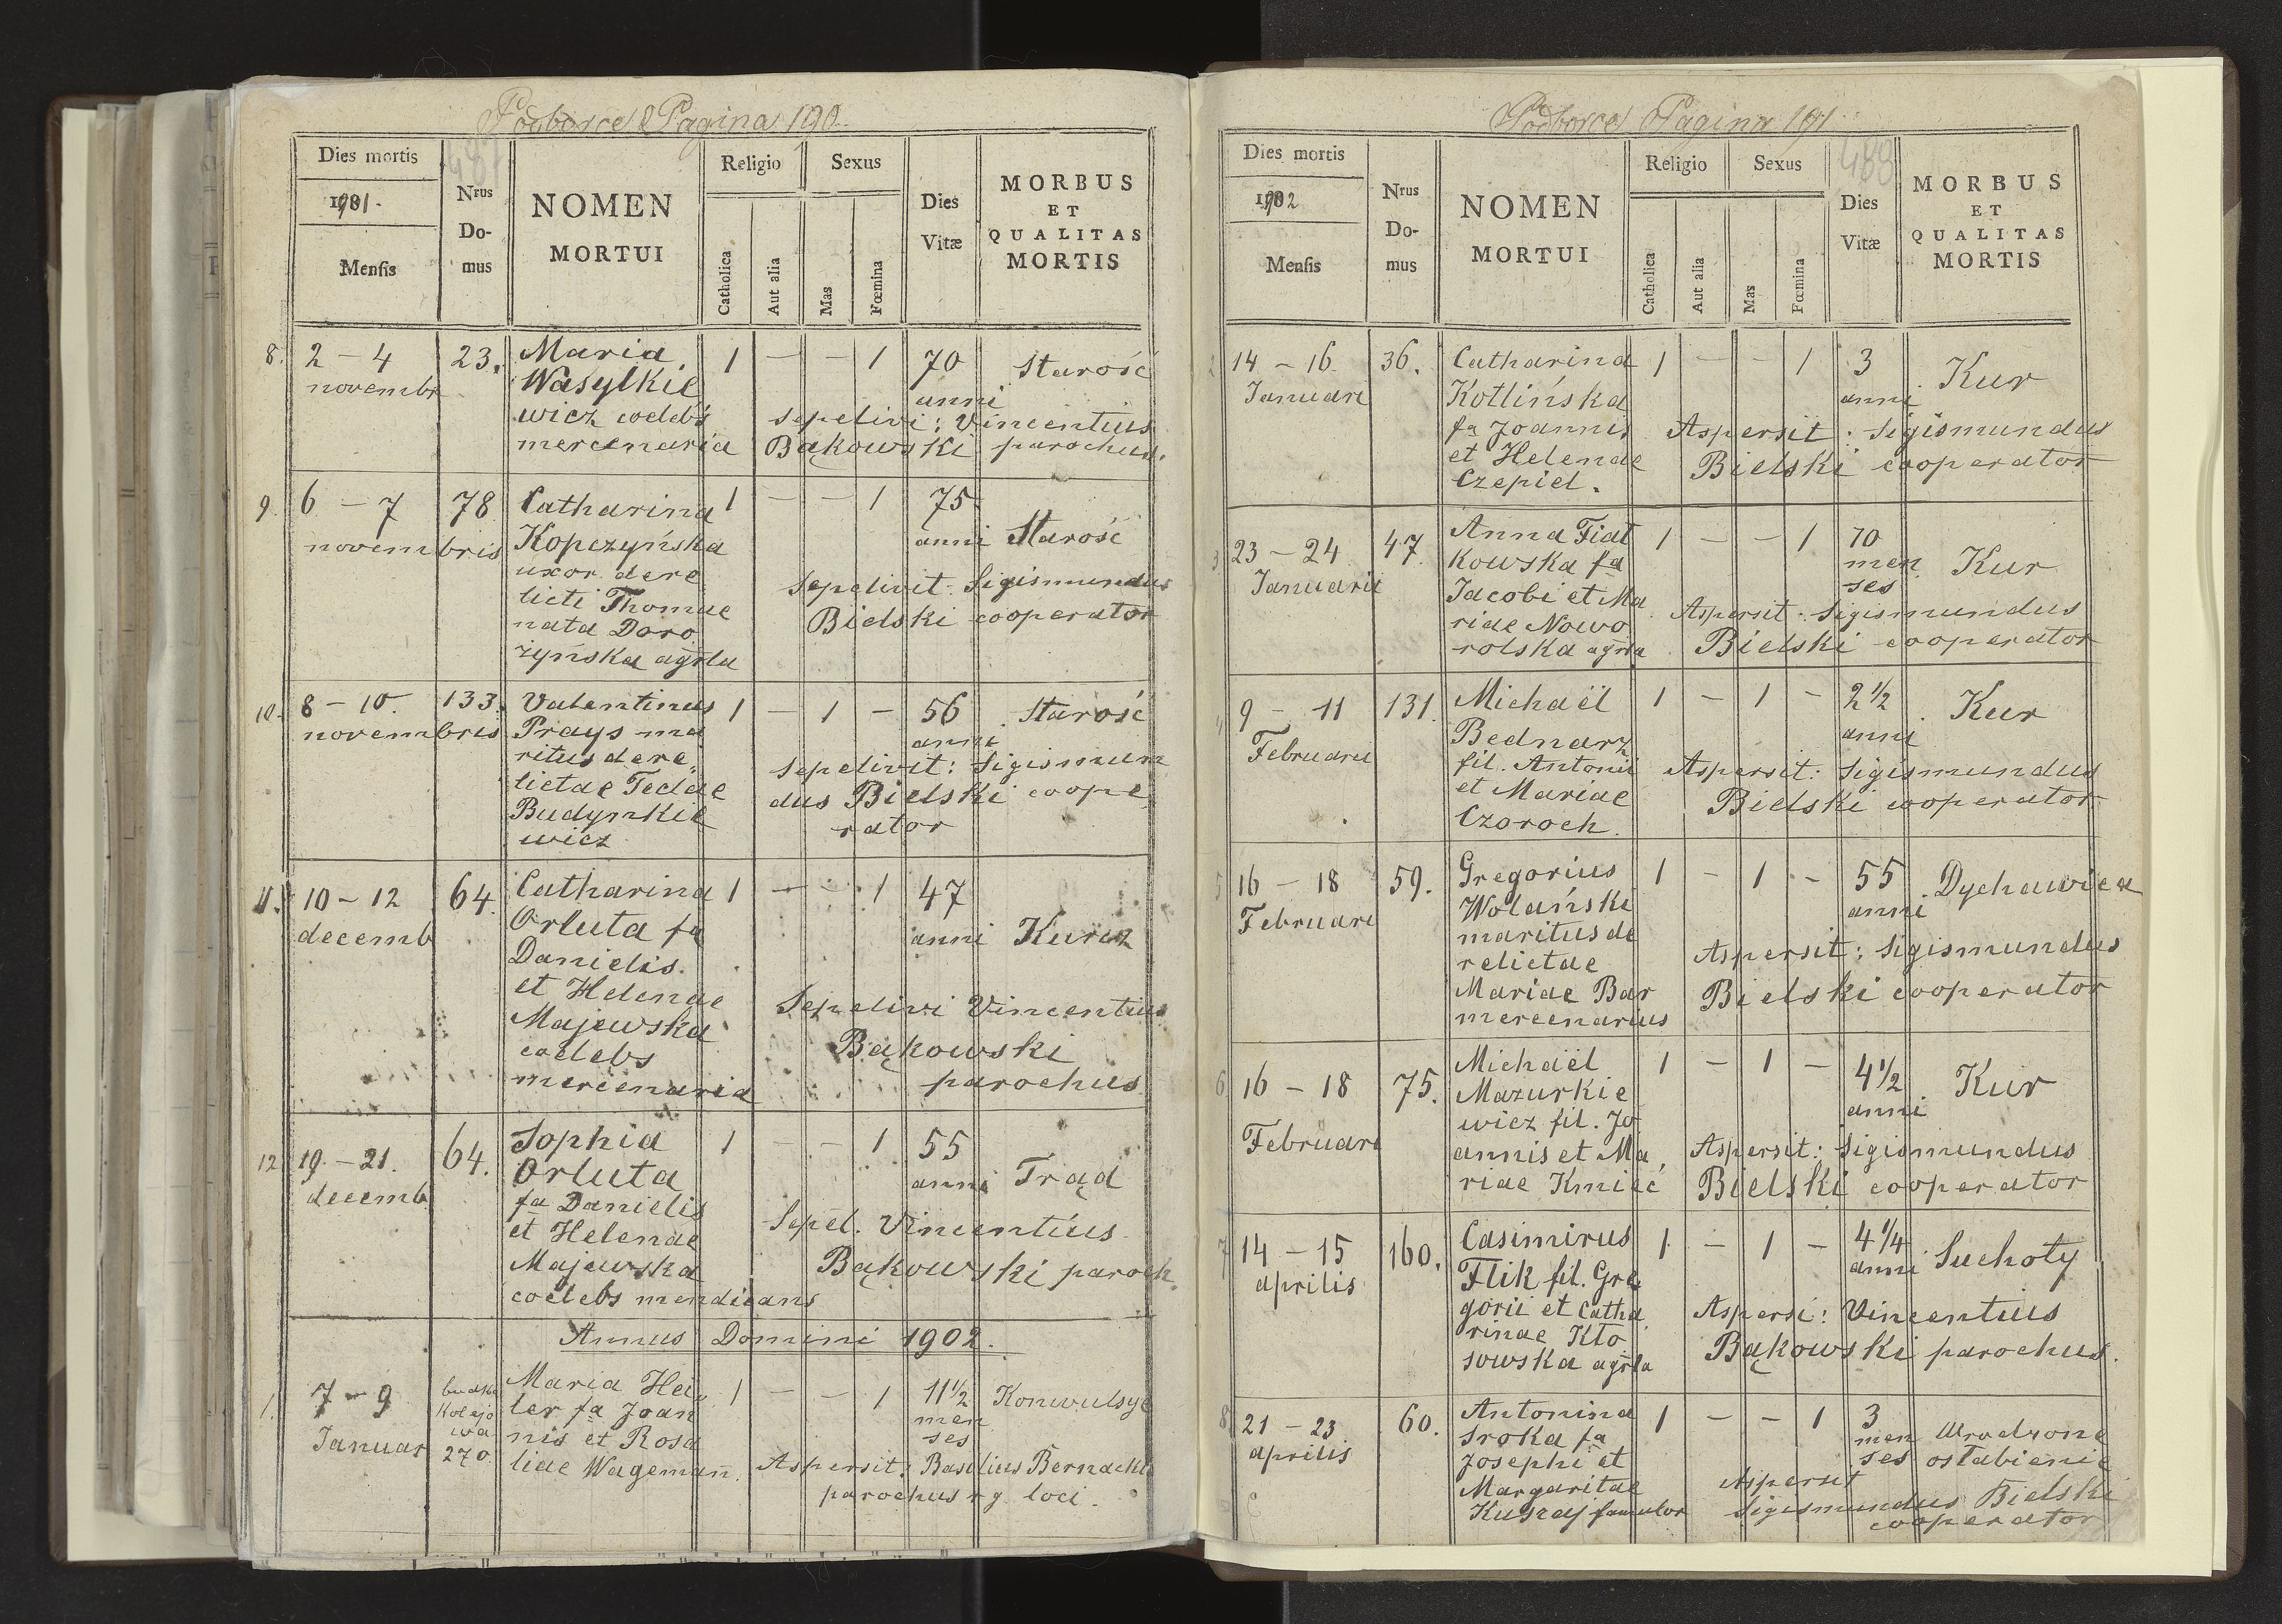 Podborce Pagina 190.
487
Dies mortis
1901.
Mensis
Nrus Do-mus
NOMEN MORTUI
Religio
Catholica
Aut alia
Sexus
Mas
Fœmina
Dies Vitæ
MORBUS ET QUALITAS MORTIS
8. 2 – 4 23. Maria 1 — — 1 70 Starość
novembr Wasylkie anni
wicz coelebs sepelivi: Vincentius
mercenaria Bąkowski parochus.
9. 6 – 7 78 Catharina 1 — — 1 75
novembris Kopczyńska anni Starość
uxor dere
licti Thomae Sepelivit: Sigismundus
nata Doro Bielski cooperator
żyńska agrla
10. 8 – 10. 133. Valentinus 1 — 1 — 56 Starość
novembris Prays ma anni
ritus dere sepelivit: Sigismun
lictae Teclae dus Bielski coope
Budynkie rator
wicz
11. 10 – 12 64. Catharina 1 — — 1 47
decemb Orluta fa anni Kurcz
Danielis
et Helenae Sepelivi Vincentius
Majewska Bąkowski
coelebs parochus
mercenaria
12. 19. – 21. 64. Sophia 1 — — 1 55
decemb. Orluta anni Trąd
fa Danielis Sepel. Vincentius
et Helenae
Majewska Bąkowski paroch.
coelebs mendicans
Annus Domini 1902.
1. 7 – 9 budka Maria Hei 1 — — 1 11½ Konwulsye
Januar kolejo ler fa Joan men
wa nis et Rosa ses
270. liae Wagemann. Aspersit: Basilius Bernacki
parochus rg. loci.
Podborce Pagina 191
488
Dies mortis
1902
Mensis
Nrus Do-mus
NOMEN MORTUI
Religio
Catholica
Aut alia
Sexus
Mas
Fœmina
Dies Vitæ
MORBUS ET QUALITAS MORTIS
2 14 – 16. 36. Catharina 1 — — 1 3 Kur
Januari Kotlińska anni
fa Joannis Aspersit: Sigismundus
et Helenae Bielski cooperator
Czepiel.
3 23 – 24 47. Anna Fiat 1 — — 1 10
Januarii kowska fa men Kur
Jacobi et Ma ses
riae Nowo Aspersit: Sigismundus
rolska agrla Bielski cooperator
4 9 – 11 131. Michaël 1 — 1 — 2½ Kur
Februarii Bednarz anni
fil. Antonii Aspersit: Sigismundus
et Mariae Bielski cooperator
Czoroch.
5 16 – 18 59. Gregorius 1 — 1 — 55 Dychawica
Februari Wolański anni
maritus de Aspersit: Sigismundus
relictae
Mariae Bar Bielski cooperator
mercenarius
6 16 – 18 75. Michaël 1 — 1 — 4½ Kur
Februari Mazurkie anni
wicz fil. Jo
annis et Ma Aspersit: Sigismundus
riae Kmieć Bielski cooperator
7 14 – 15 160. Casimirus 1 — 1 — 4¼ Suchoty
aprilis Flik fil. Gre anni
gorii et Catha Aspersi: Vincentius
rinae Kto Bąkowski parochus.
sowska agrla
8 21 – 23 60. Antonina 1 — — 1 3 Wrodzone
aprilis Sroka fa men osłabienie
Josephi et ses
Margaritae Aspersit
Kusraj famulor Sigismundus Bielski
cooperator